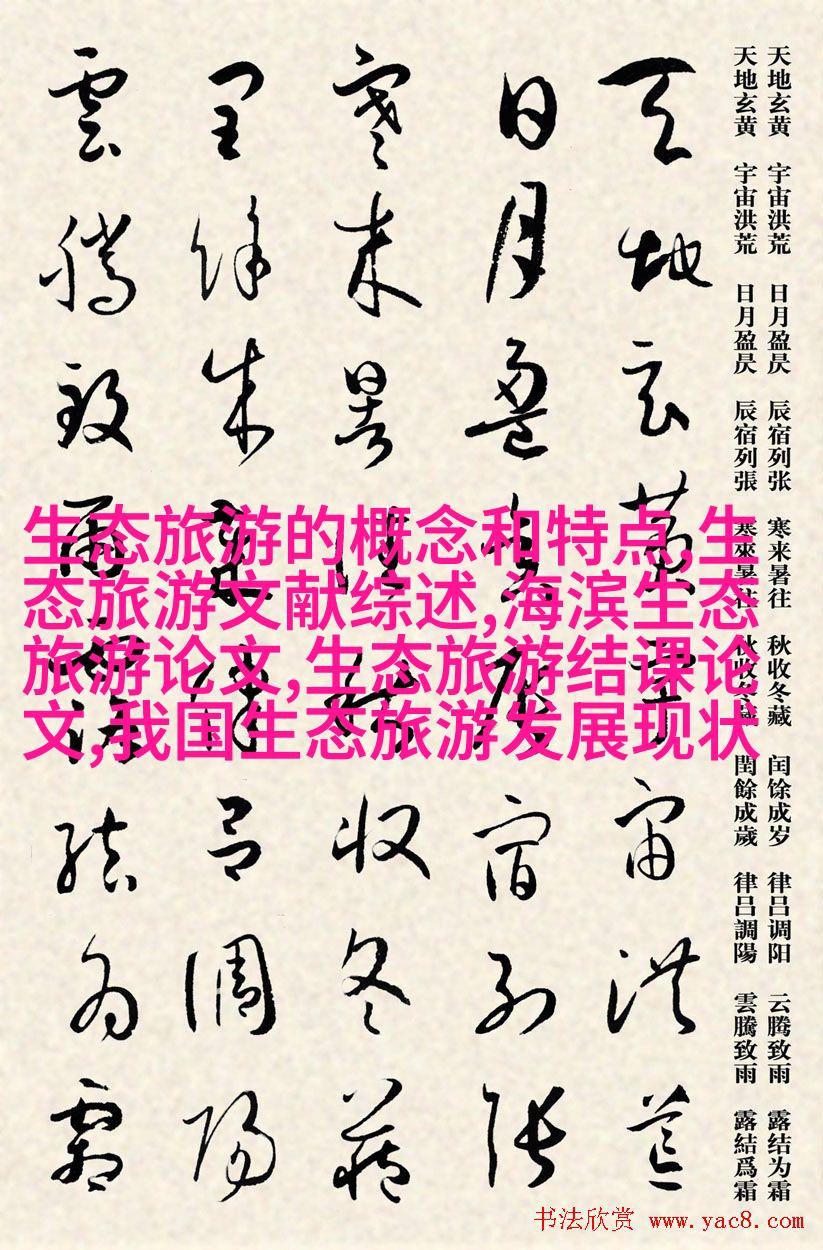 天地玄黄 宇宙洪荒 日月盈昃 辰宿列张 寒来暑往 秋收冬藏 闰馀成岁 律吕调阳 云腾致雨 露结为霜
天地玄黄 宇宙洪荒 日月盈昃 辰宿列張 寒來暑往 秋收冬藏 閏餘成歲 律呂調陽 雲騰致雨 露結爲霜
天地玄黄宇宙洪荒
日月盈昃辰宿列張
寒来暑往秋收冬藏
閏餘成歲律呂調陽
雲騰致雨露結為霜
生态旅游的概念和特点,生
态旅游文献综述,海滨生态
旅游论文,生态旅游结课论
文,我国生态旅游发展现状
书法欣赏 www.yac8.com